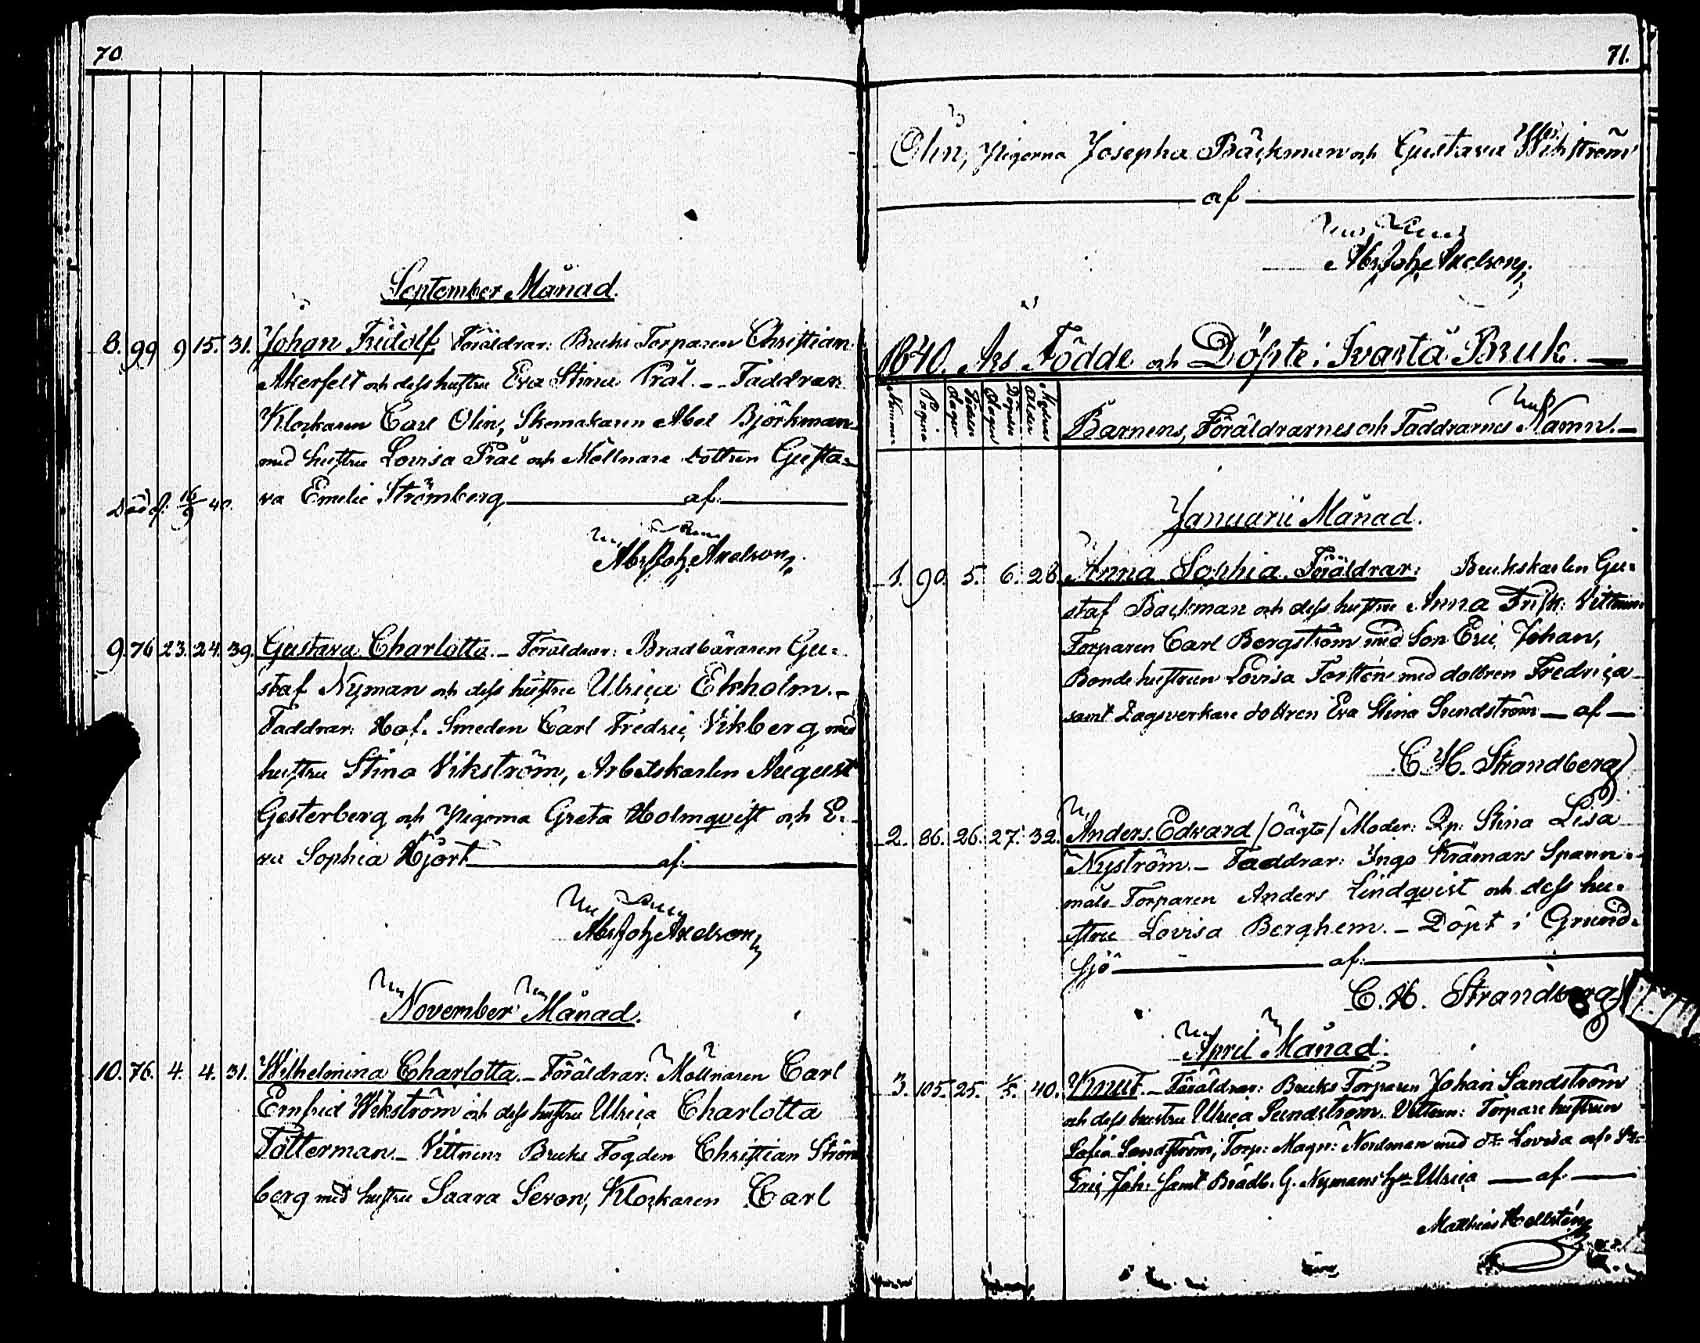 70.
September Månad.
8. 99 9 15. 31. Johan Fridolf. Föräldrar: Bruks Torparen Christian
Åkerfelt och dess hustru Eva Stina Prål. – Faddrar:
Klockaren Carl Olin, Skomakaren Abel Björkman
med hustru Lovisa Prål och Möllnare dottren Gusta-
va Emelie Strömberg af
Död d. 16/9 40.
Abr. Joh. Axelson.
9. 76. 23. 24. 39. Gustava Charlotta. – Föräldrar: Brädbäraren Gu-
staf Nyman och dess hustru Ulrica Ekholm. –
Faddrar: Hof-Smeden Carl Fredric Vikberg med
hustru Stina Vikström, Arbetskarlen August
Gesterberg och Pigorna Greta Holmqvist och E-
va Sophia Hjort af
Abr. Joh. Axelson
November Månad.
10. 76. 4. 4. 31. Wilhelmina Charlotta. – Föräldrar: Möllnaren Carl
Emfrid Wikström och dess hustru Ulrica Charlotta
Tötterman. – Vittnen: Bruks Fogden Christian Ström
berg med hustru Saara Seron, Klockaren Carl
71.
Olin, Pigorna Josepha Bäckman och Gustava Wikström
af
Abr. Joh. Axelson.
1840. Års Födde och Döpte i Svartå Bruk.
Nummer Pagina Dagen Födelse Dagen Döpelse Modrens Ålder
Barnens, Föräldrarnes och Faddrarnes Namn. –
Januarii Månad.
1. 90. 5. 6. 28. Anna Sophia. Föräldrar: Brukskarlen Gu-
staf Backman och dess hustru Anna Frisk: Vittnen
Torparen Carl Bergström med Son Eric Johan,
Bonde hustrun Lovisa Forstén med dottren Fredrica
samt Sagsverkare dottren Eva Stina Sundström – af –
C. H. Strandberg
2. 86. 26. 27. 32. Anders Edvard /Oägta/ Moder: Qp: Stina Lisa
Nyström. – Faddrar: Ingo Krämars Spann-
måls Torparen Anders Lindqvist och dess hu-
stru Lovisa Berghem. – Döpt i Grund-
sjö af
C. H. Strandberg
April Månad.
3. 105. 25. 1/5. 40. Knut. – Föräldrar: Bruks Torparen Johan Sandström
och dess hustru Ulrica Sundström. Vittnen: Torpare hustrun
Sofia Sandström, Torp: Magn: Nordman med dr: Lovisa
Eric Joh: Samt Brädb. G. Nymans h:u Ulrica – af –
Matthias Hellstén